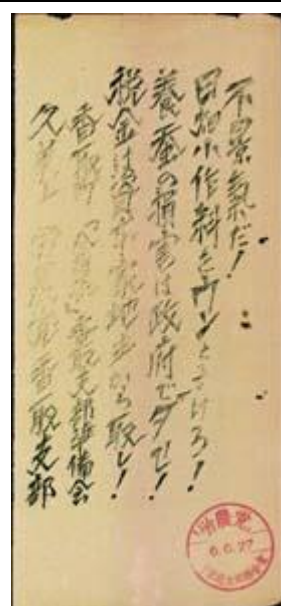 不景氣だ!
田畑小作料をウンとまけろ!
養蚕の損害は政府でダせ!
税金は資本家地主から取れ!
香取支部準備会
香取支部
6.6.27